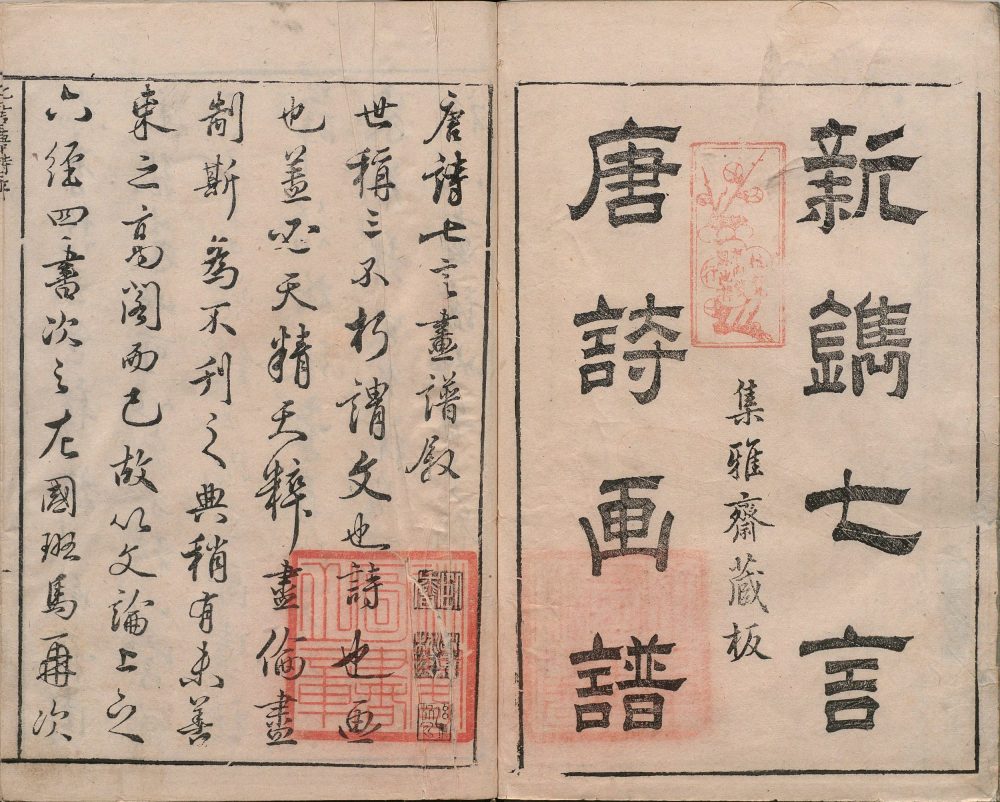 新鐫七言
集雅齋藏板
唐詩画譜
唐詩七言畫譜敘
世稱三不朽謂文也詩也画
也蓋必天精天粹盡倫盡
制斯為不刊之典稍有未善
束之高閣而已故以文論上之
六經四書次之左國班馬再次